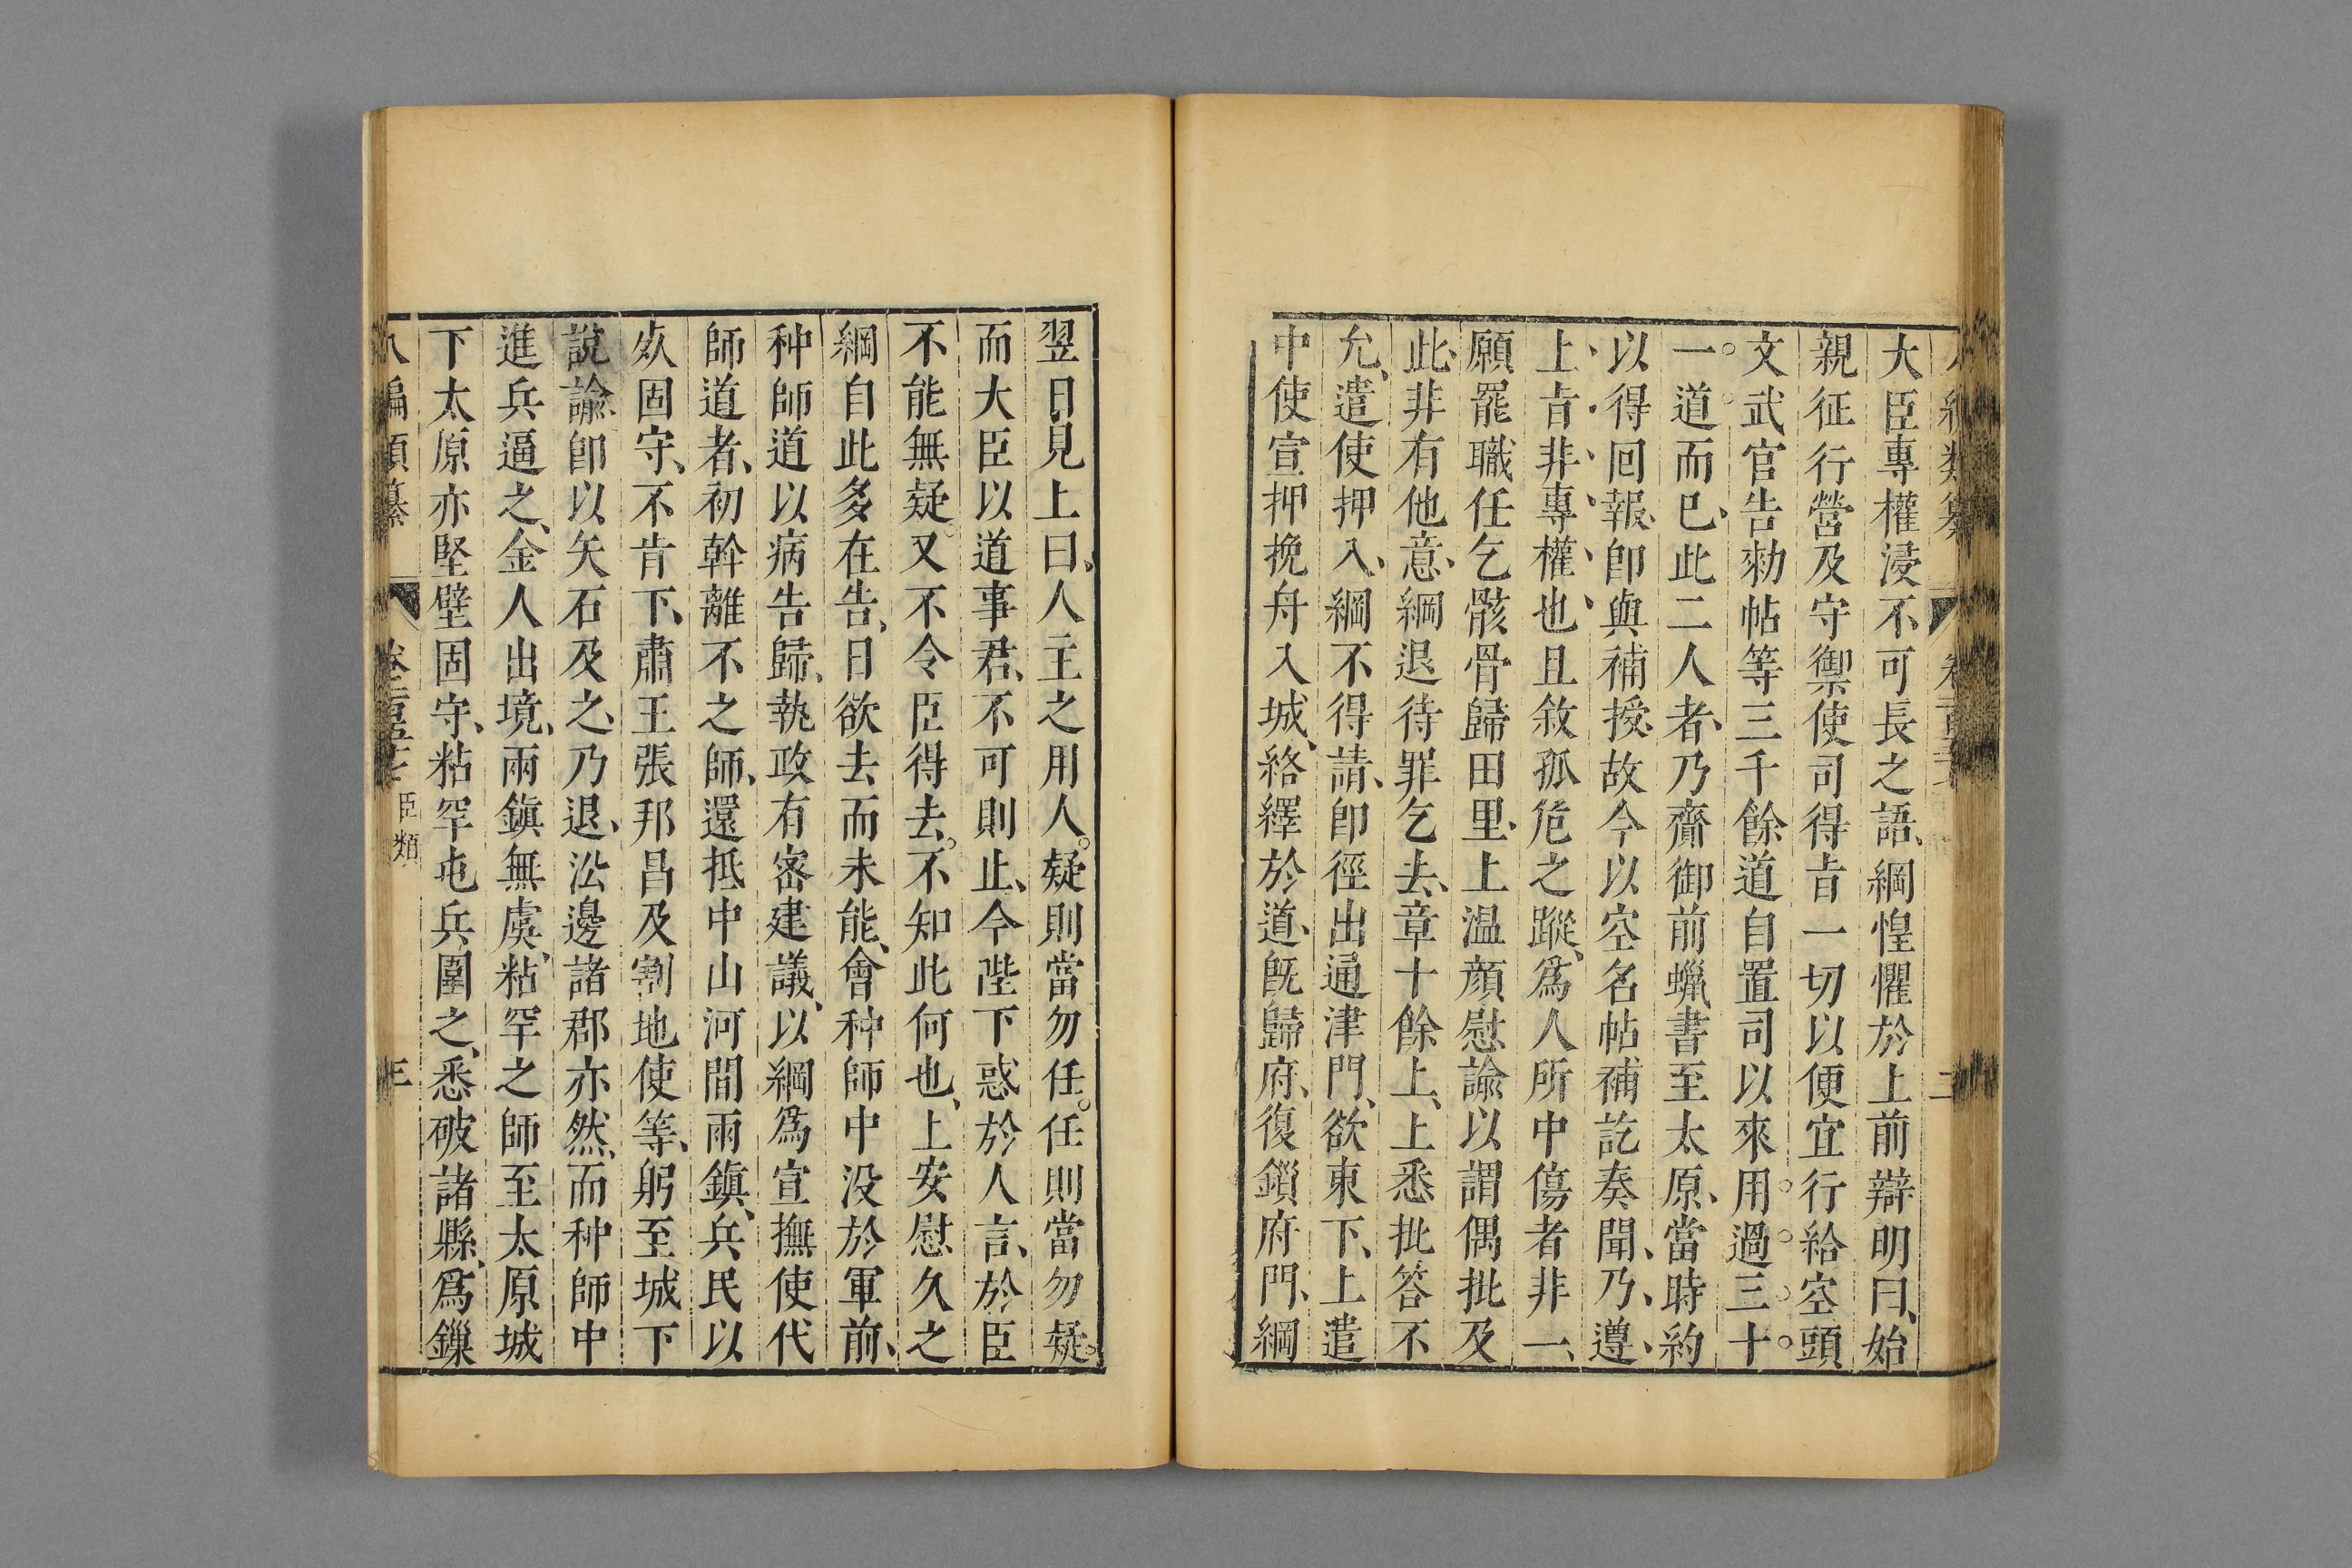 大臣專權浸不可長之語、綱惶懼於上前辯明曰、始
親征行營及守禦使司得旨一切以便宜行給空頭
文武官告勑帖等三千餘道自置司以來用過三十
一道而已、此二人者、乃齎御前蠟書至太原、當時約
以得回報、卽與補授、故今以空名帖補訖奏聞、乃遵
上旨非專權也、且敘孤危之蹤、爲人所中傷者非一、
願罷職任乞骸骨歸田里、上温顔慰諭以謂偶批及
此、非有他意、綱退待罪乞去、章十餘上、上悉批答不
允、遣使押入、綱不得請、卽徑出通津門、欲東下、上遣
中使宣押挽舟入城、絡繹於道、旣歸府、復鎖府門、綱
翌日見上曰、人主之用人。疑則當勿任。任則當勿疑。
而大臣以道事君、不可則止、今陛下惑於人言、於臣
不能無疑。又不令臣得去。不知此何也、上安慰久之
綱自此多在告、日欲去而未能、會种師中没於軍前、
种師道以病告歸、執政有密建議、以綱爲宣撫使代
師道者、初斡離不之師、還抵中山河間兩鎭、兵民以
死固守、不肯下、肅王張邦昌及割地使等、躬至城下
說諭、卽以矢石及之、乃退、沿邊諸郡亦然、而种師中
進兵逼之、金人出境、兩鎭無虞、粘罕之師至太原城
下太原亦堅壁固守、粘罕屯兵圍之、悉破諸縣、爲鏁
八編類纂 臣類 三